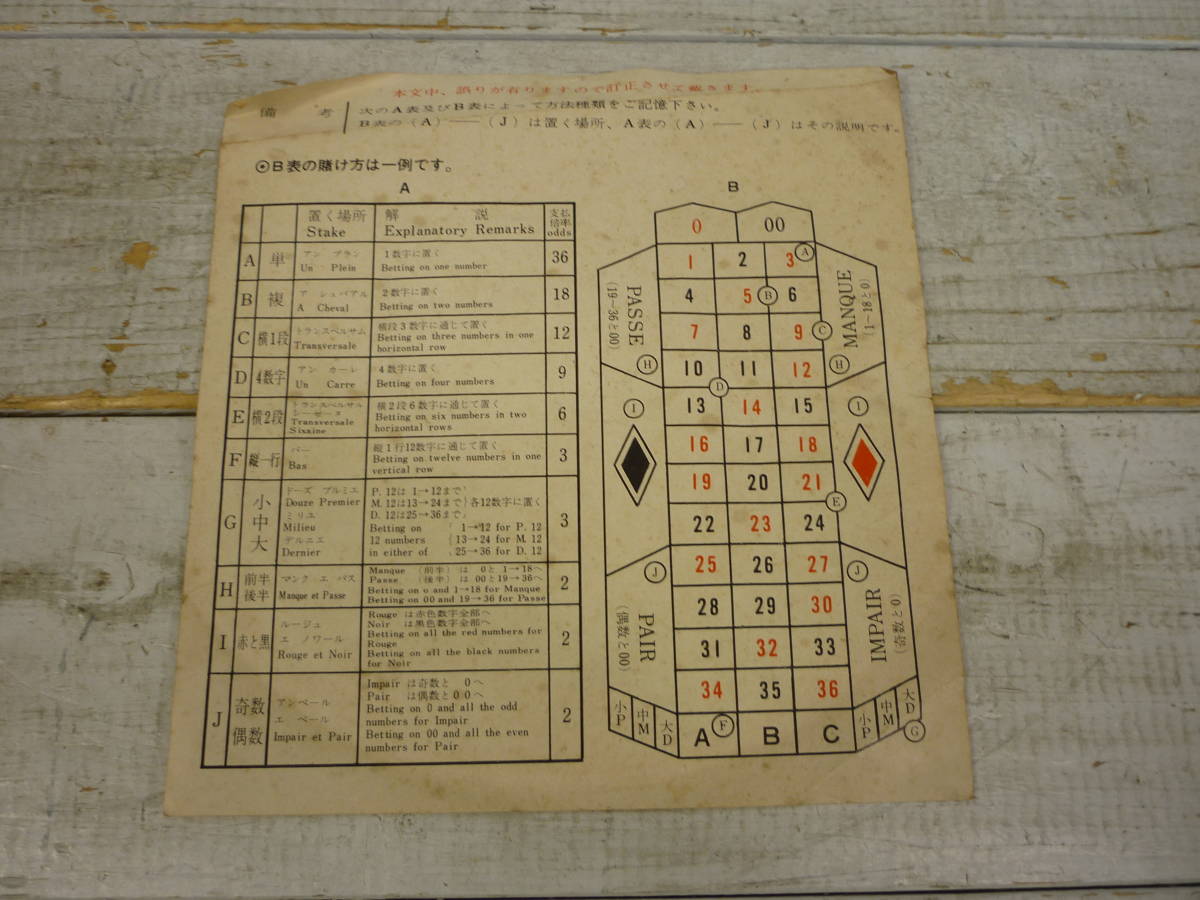 本文中、誤りが有りますので訂正させて戴きます。
備 考
次のA表及びB表によって方法種類をご記憶下さい。
B表の(A)——(J)は置く場所、A表の(A)——(J)はその説明です。
⊙B表の賭け方は一例です。
A
置く場所 解 説 支払倍率
Stake Explanatory Remarks odds
A 単 アン プラン 1数字に置く 36
Un Plein Betting on one number
B 複 ア シュバアル 2数字に置く 18
A Cheval Betting on two numbers
C 横1段 トランスベルサム 横段3数字に通じて置く 12
Transversale Betting on three numbers in one
horizontal row
D 4数字 アン カーレ 4数字に置く 9
Un Carre Betting on four numbers
E 横2段 トランスベルサム 横2段6数字に通じて置く 6
シーゼーヌ
Transversale Betting on six numbers in two
Sixaine horizontal rows
F 縦一行 バー 縦1行12数字に通じて置く 3
Bas Betting on twelve numbers in one
vertical row
G 小 中 大 3
ドーズ プルミエ P. 12は 1→12まで
Douze Premier M. 12は13→24まで 各12数字に置く
ミリユ D. 12は25→36まで
Milieu Betting on 1→12 for P. 12
デルニエ 12 numbers 13→24 for M. 12
Dernier in either of 25→36 for D. 12
H 前半 後半 マンク エ パス 2
Manque et Passe
Manque (前半) は 0と 1→18へ
Passe (後半) は 00と19→36へ
Betting on o and 1→18 for Manque
Betting on 00 and 19→36 for Passe
I 赤と黒 ルージュ 2
エ ノワール
Rouge et Noir
Rouge は赤色数字全部へ
Noir は黒色数字全部へ
Betting on all the red numbers for
Rouge
Betting on all the black numbers
for Noir
J 奇数 偶数 アンペール 2
エ ペール
Impair et Pair
Impair は奇数と 0へ
Pair は偶数と00へ
Betting on 0 and all the odd
numbers for Impair
Betting on 00 and all the even
numbers for Pair
B
0 00
1 2 3 A
4 5 B 6
7 8 9 C
10 11 12
D
13 14 15
16 17 18
19 20 21
E
22 23 24
25 26 27
28 29 30
31 32 33
34 35 36
A F B C
PASSE
(19-36と00)
H
I
J
PAIR
(偶数と00)
小P 中M 大D
MANQUE
(1-18と0)
H
I
J
IMPAIR
(奇数と0)
小P 中M 大D
G